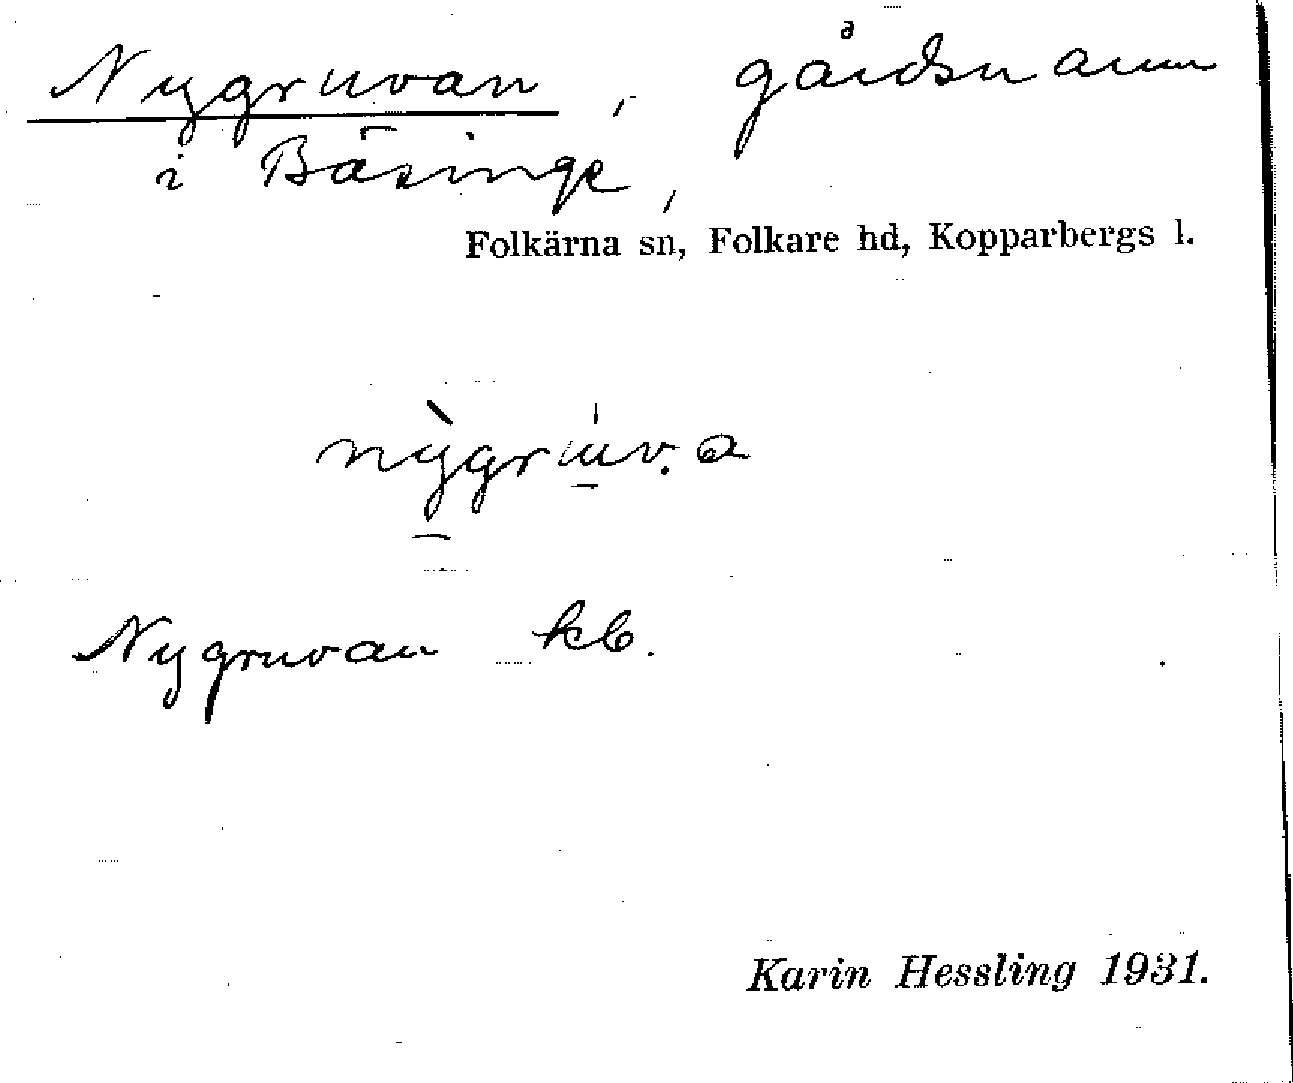 Nygruvan, gårdsnamn
i Bäsinge,
Folkärna sn, Folkare hd, Kopparbergs l.
Nygruvan kb.
Karin Hessling 1931.